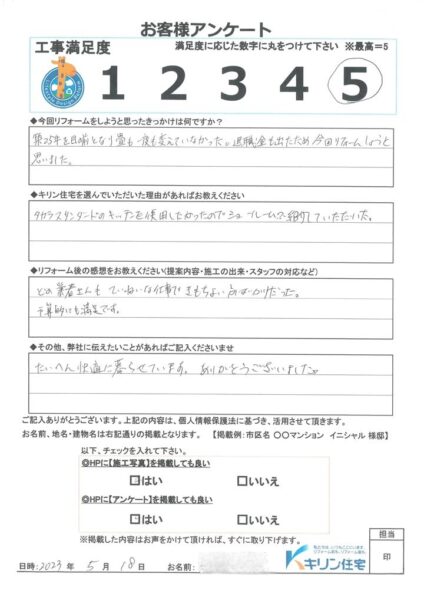 お客様アンケート
工事満足度
満足度に応じた数字に丸をつけて下さい ※最高=5
1 2 3 4 5
◆今回リフォームをしようと思ったきっかけは何ですか?
築25年を目前となり畳も一度も変えていなかった。退職金も出たため今回リフォームしようと
思いました。
◆キリン住宅を選んでいただいた理由があればお教えください
タカラスタンダードのキッチンを使用したかったのでショールームで紹介していただいた。
◆リフォーム後の感想をお教えください(提案内容・施工の出来・スタッフの対応など)
どの業者さんも ていねいな仕事で きもちよい
予算的にも満足です。
◆その他、弊社に伝えたいことがあればご記入くださいませ
たいへん快適に暮らせています。 ありがとうございました。
ご記入ありがとうございます。上記の内容は、個人情報保護法に基づき、活用させて頂きます。
お名前、地名・建物名は右記通りの掲載となります。 【掲載例:市区名 〇〇マンション イニシャル 様邸】
以下、チェックを入れて下さい。
◎HPに【施工写真】を掲載しても良い
はい いいえ
◎HPに【アンケート】を掲載しても良い
はい いいえ
※掲載した内容はお声をかけて頂ければ、すぐに取り下げます。
担当
印
キリン住宅
日時:2023年 5月 18日 お名前: